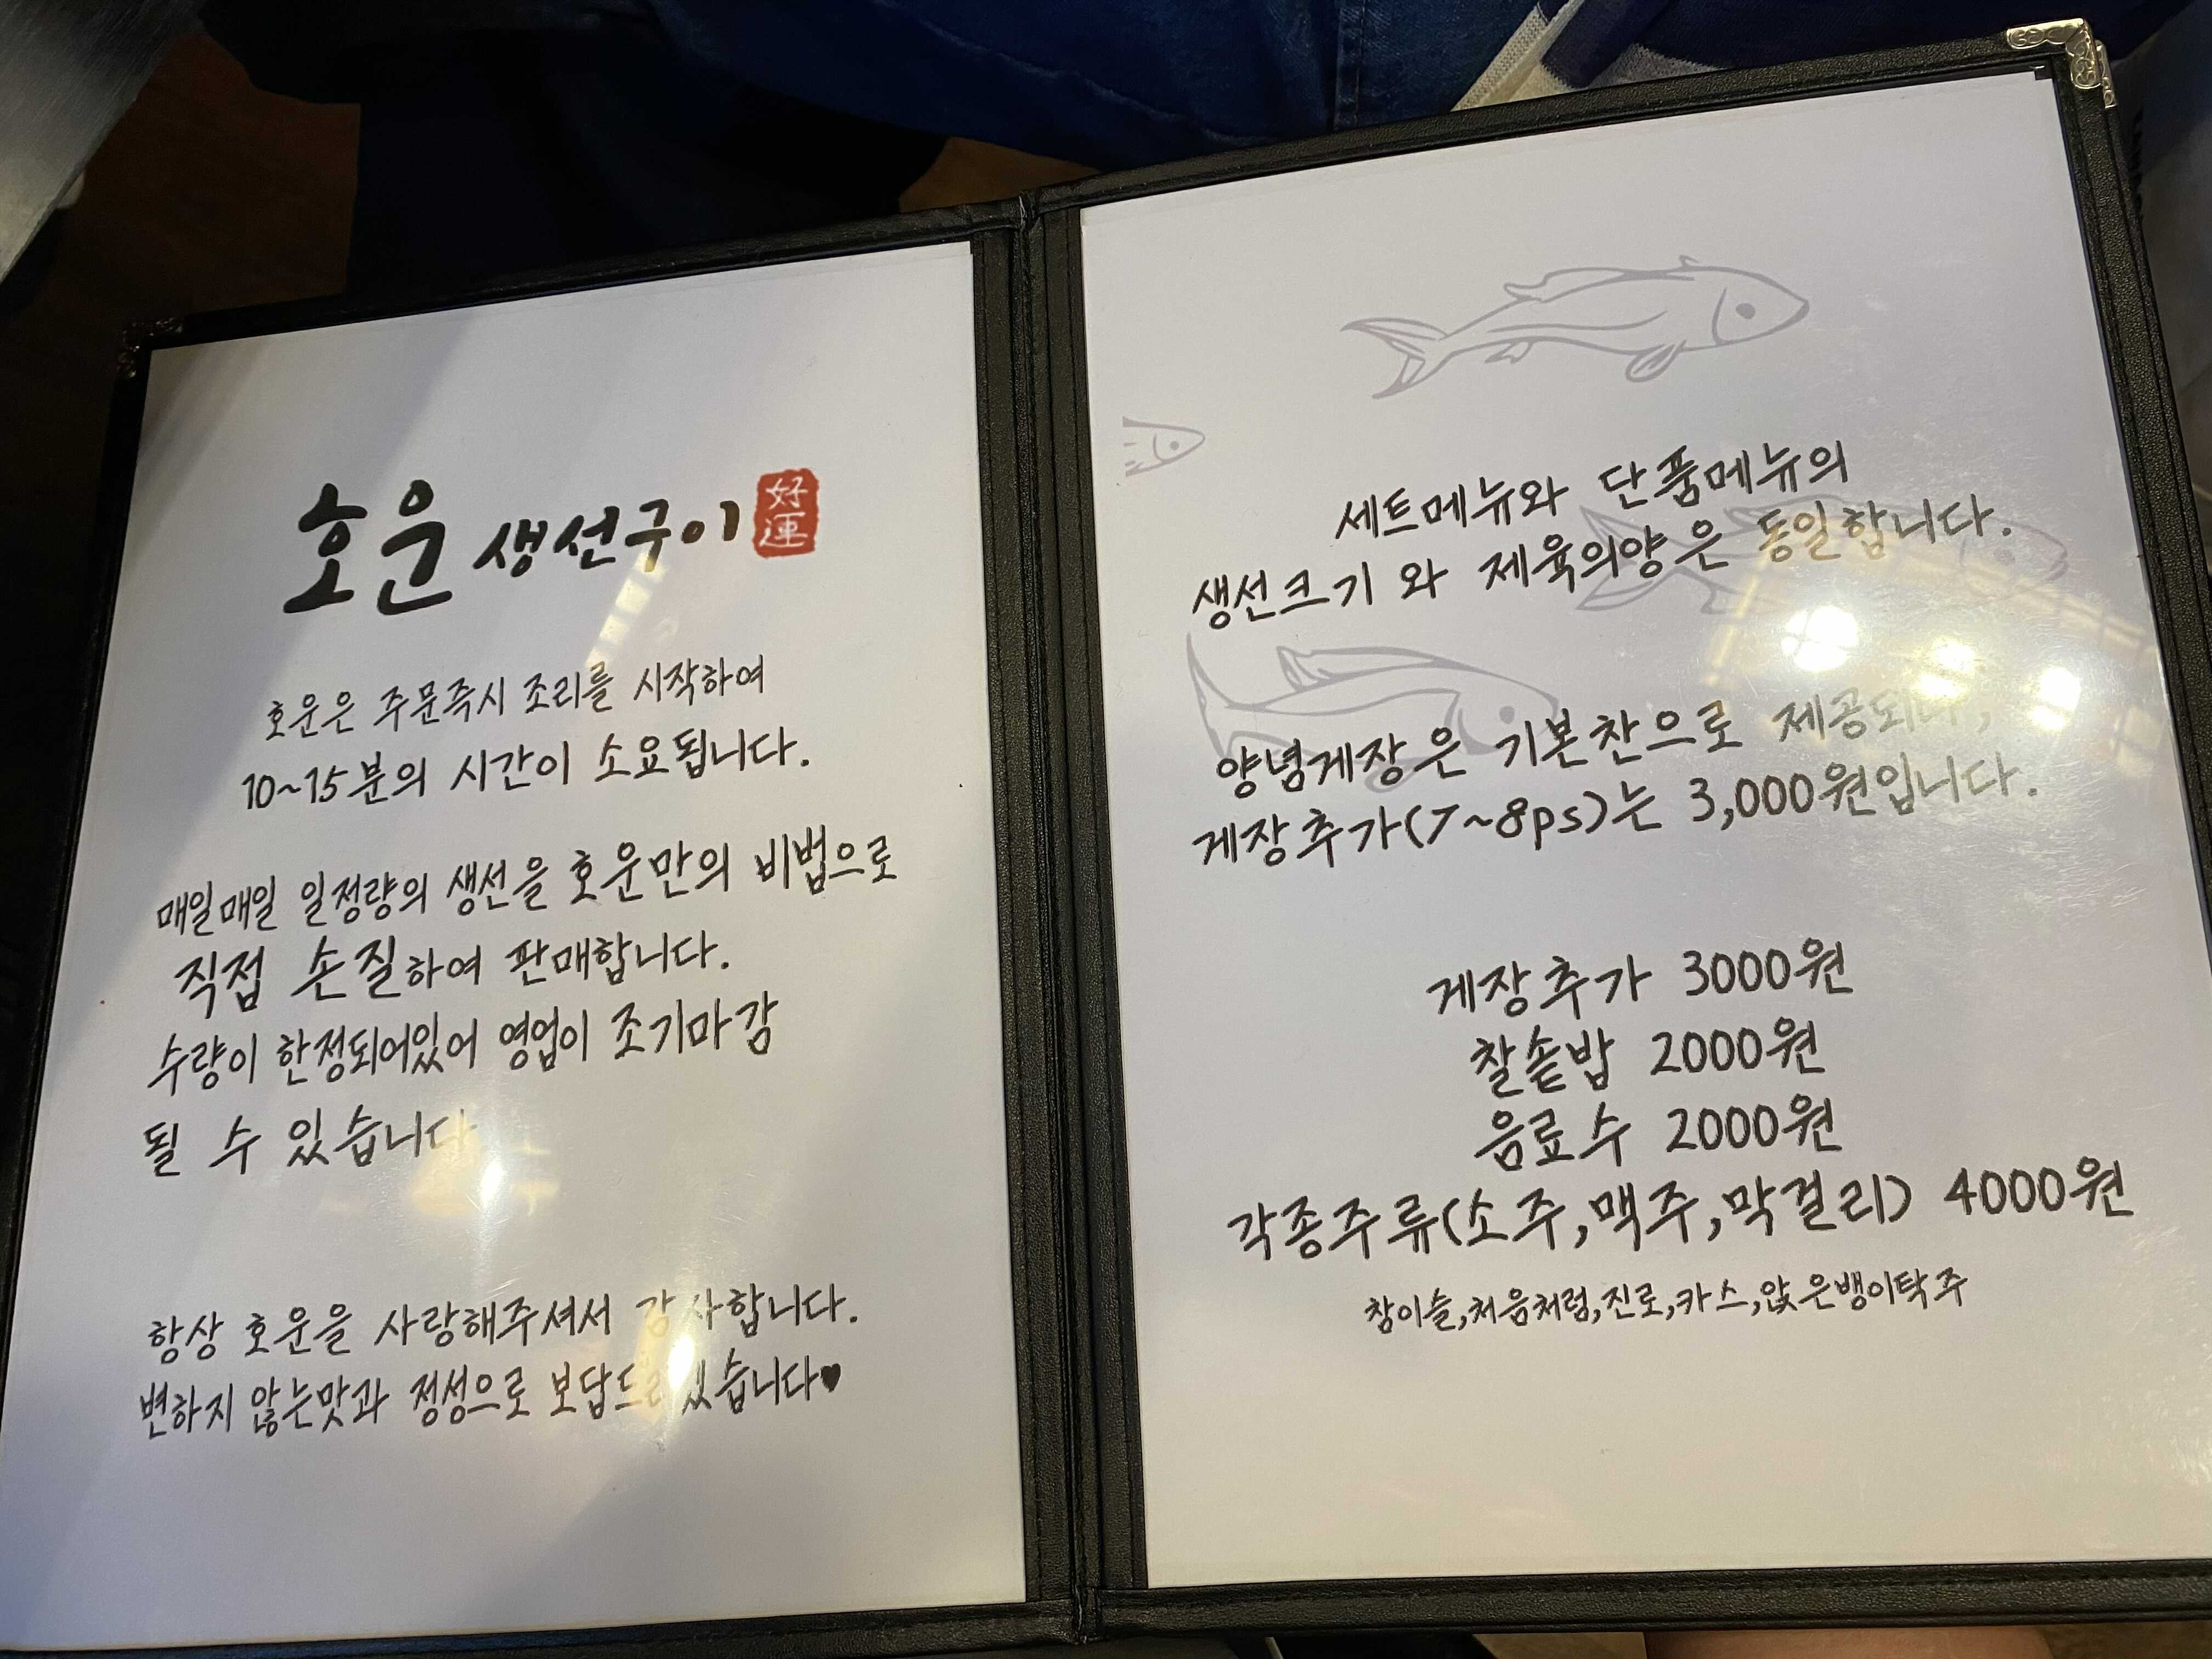 호운 생선구이 好運
호운은 주문즉시 조리를 시작하여
10~15분의 시간이 소요됩니다.
매일매일 일정량의 생선을 호운만의 비법으로
직접 손질하여 판매합니다.
수량이 한정되어있어 영업이 조기마감
될 수 있습니다
항상 호운을 사랑해주셔서 감사합니다.
변하지 않는맛과 정성으로 보답드리겠습니다♥
세트메뉴와 단품메뉴의
생선크기 와 제육의양은 동일합니다.
양념게장은 기본찬으로 제공되며,
게장추가(7~8ps)는 3,000원입니다.
게장추가 3000원
찰솥밥 2000원
음료수 2000원
각종주류(소주,맥주,막걸리) 4000원
참이슬,처음처럼,진로,카스,앉은뱅이탁주